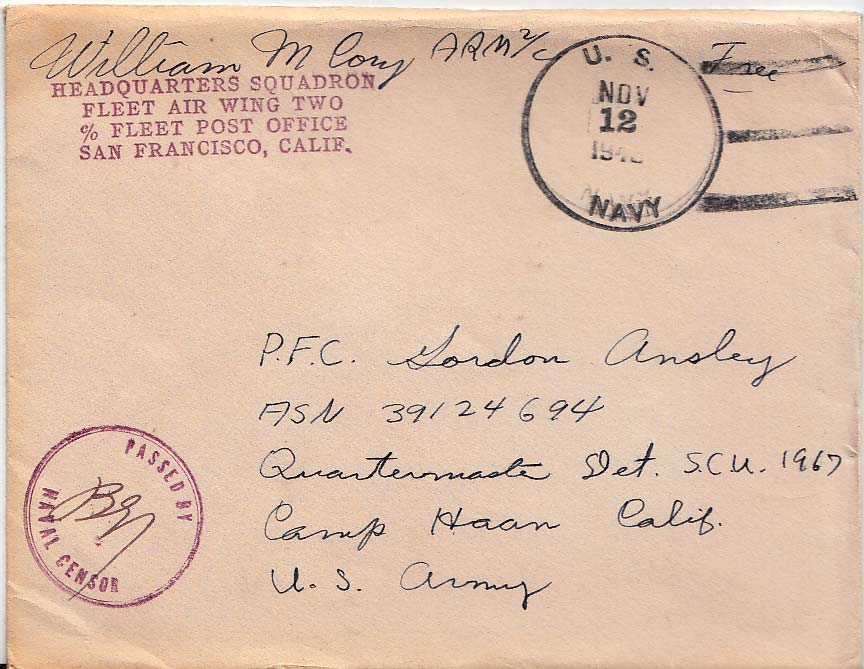 William M Cory ARM 2/c
HEADQUARTERS SQUADRON
FLEET AIR WING TWO
% FLEET POST OFFICE
SAN FRANCISCO, CALIF.
U. S.
NOV
12
NAVY
Free
P.F.C. Gordon Ansley
ASN 39124694
Quartermaster Det. S.C.U. 1967
Camp Haan Calif.
U. S. Army
PASSED BY
NAVAL CENSOR